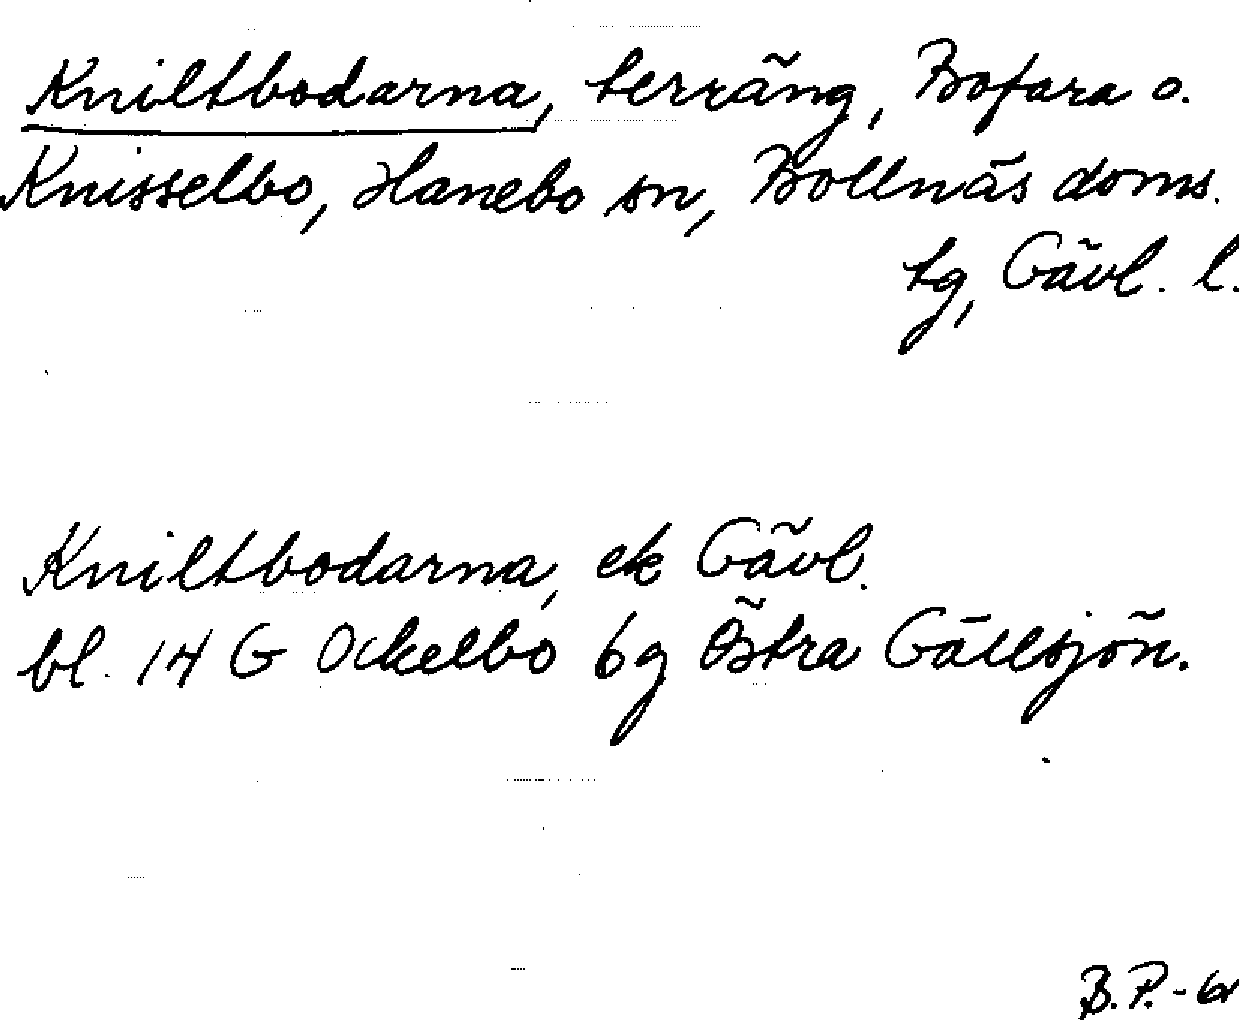 Kniltbodarna, terräng, Bofara o.
Knisselbo, Hanebo sn, Bollnäs doms.
tg, Gävl. l.
Kniltbodarna, ek Gävl.
bl. 14 G Ockelbo 6g Östra Gällsjön.
B.P.-